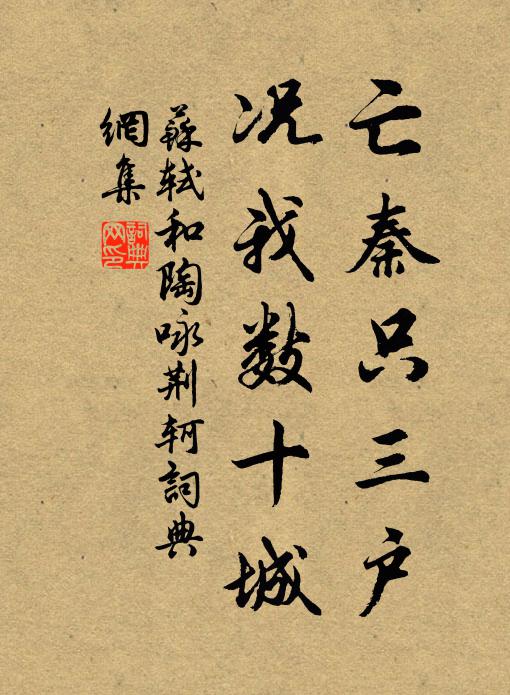 亡秦只三户
况我数十城
蘇轼和陶咏荆轲詞典
網集
詞典网印